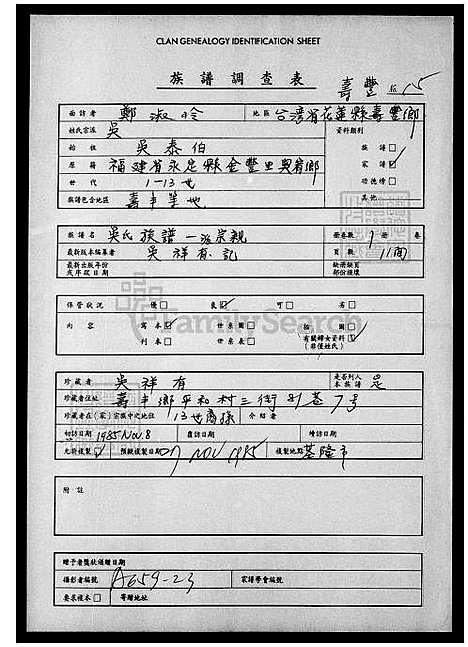 CLAN GENEALOGY IDENTIFICATION SHEET
族譜調查表
壽豐 15
面訪者 鄭淑吟 地區 台灣省花蓮縣壽豐鄉
姓氏宗派 吳 資料類別
始祖 吳泰伯 族譜□
原籍 福建省永定縣金豐里奧杳鄉 家譜☑
世代 1-13世 功德榜□
族譜包含地區 壽丰等地 其他
族譜名 吳氏族譜一派宗親 冊卷數 1 冊 卷
最新版本編纂者 吳祥有記 頁數 11面
最新出版年份或序跋日期 缺冊缺頁部份種壞
保管狀況 優□ 良☑ 可□ 劣□
內容 寫本☑ 世系圖□ 拍圖☑
刊本□ 世系表□ 有關婦女資料☑(非僅姓氏)
FamilySearch
珍藏者 吳祥有 是否列入本族譜 是
珍藏者住址 壽丰鄉平和村三街31巷7号
珍藏者在(家)宗族中之地位 13世裔孫 介紹者
初訪日期 1985 Nov. 8 覆訪日期 續訪日期
允許複製☑ 預約複製日期 7 NOV 1985 複製地點 基隆市
附註
贈予者獎狀頒贈日期
攝影者編號 A659-23 宗譜學會編號
要求複本□ 寄贈地址